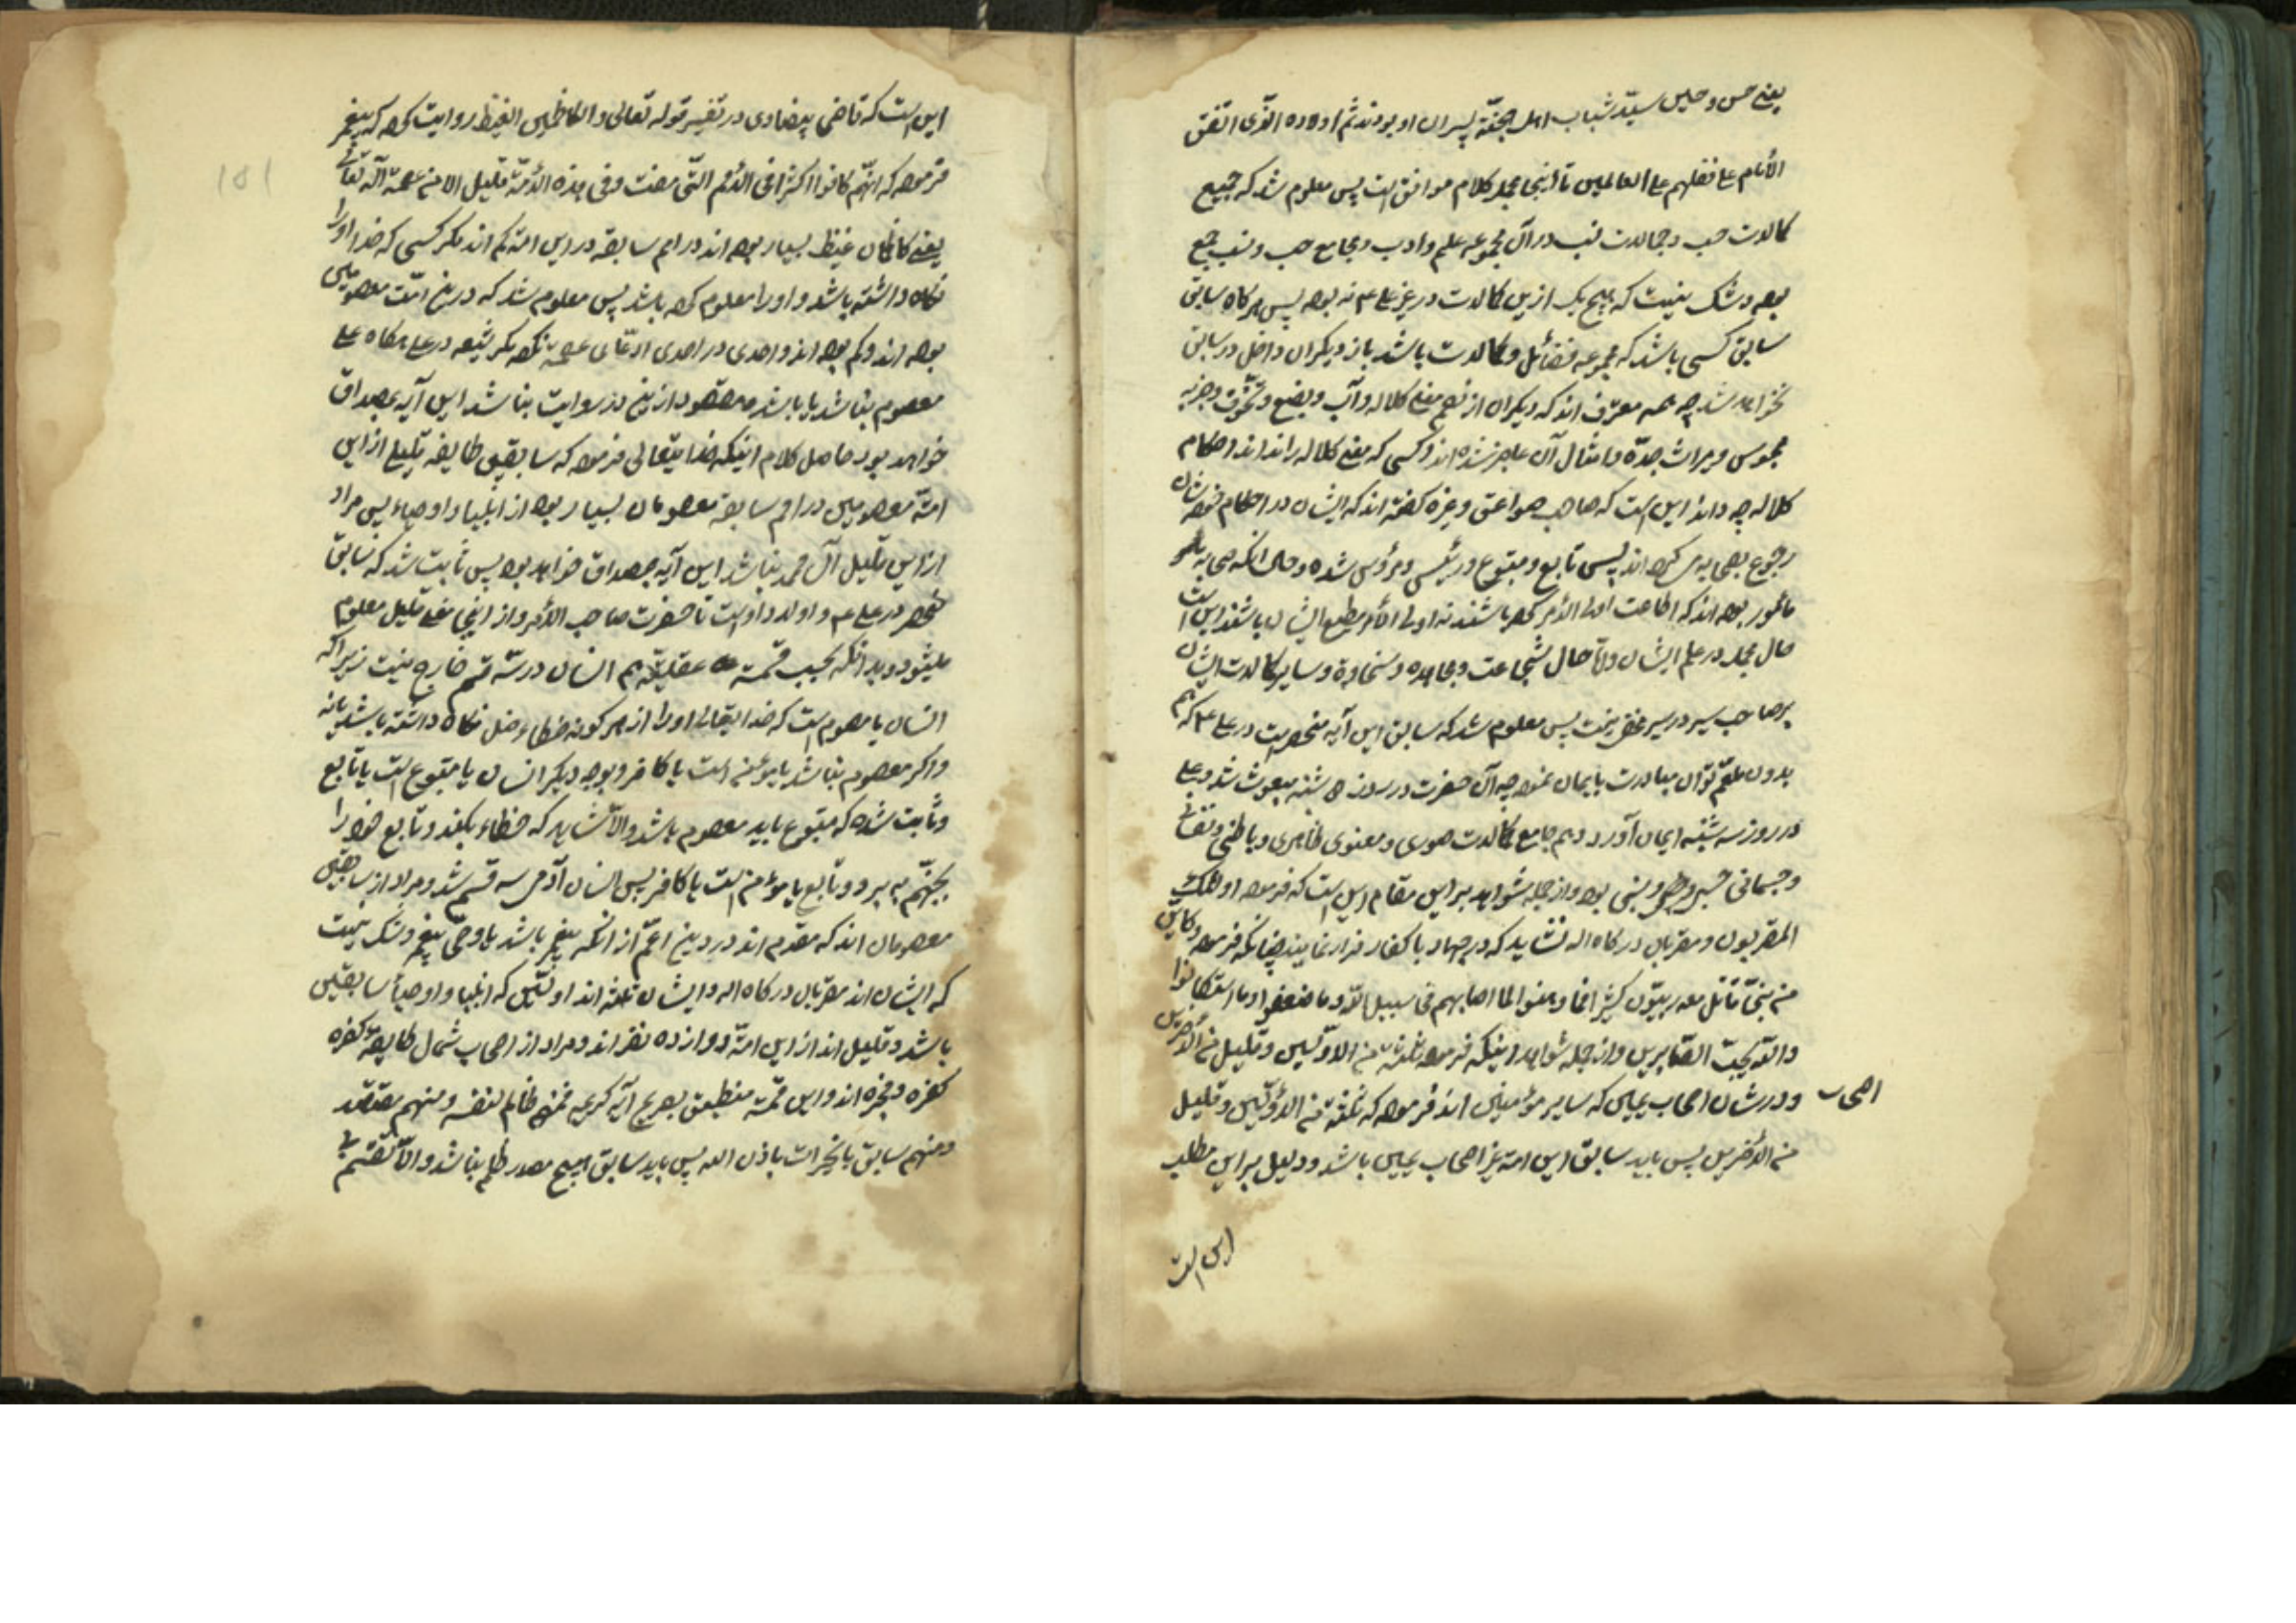 یعنی حسن و حسین سید شباب اهل الجنة پسران او بودند ثم اولاده الذی اتفق
الأنام علی فضلهم علی العالمین تا اینجا مجمله کلام موافق است پس معلوم شد که جمیع
کمالات حسب و جمالات نسب در آن مجموعه علم و ادب و مجامع حسب و نسب جمع
بوده و شک نیست که هیچ یک ازین کمالات در غیر علی ع نه بوده پس هرگاه سابق
سابق کسی باشد که مجموعه فضائل و کمالات باشد باز دیگران داخل در سابق
نخواهد شد چه همه معترف اند که دیگران از فهم معنی کلاله و أب و بضع و تخوف و جزیه
مجوس و میراث جده و امثال آن عاجز شده اند و کسی که معنی کلاله را نداند احکام
کلاله چه داند این است که صاحب صواعق و غیره گفته اند که ایشان در احکام خودشان
رجوع بصحابه می کرده اند پس تابع و متبوع و رئیس و مرؤس شده و حال انکه صحابه
مأمور بوده اند که اطاعت اولی الأمر کرده باشند نه اولی الأمر مطیع ایشان باشند این است
حال مجمله در علم ایشان و اما حال شجاعت و مجاهده و سخاوة و سایر کمالات ایشان
بر صاحب سیر در سیر مخفی نیست پس معلوم شد که سابق این آیه منحصر است در علی ع که هم
بدون تلعثم توان مبادرت بایمان نموده چه آن حضرت در روز دوشنبه مبعوث شد و علی
در روز سه شنبه ایمان آورد و هم جامع کمالات صوری و معنوی ظاهری و باطنی و نفسانی
و جسمانی حسبی و نسبی بود و از جمله شواهد بر این مقام این است که فرموده اولئک
المقربون و مقربان درگاه اله نشاید که در جهاد با کفار فرار نمایند چنانکه فرموده و کاین
من نبی قاتل معه ربیون کثیر فما وهنوا لما اصابهم فی سبیل الله و ما ضعفوا و ما استکانوا
و الله یحب الصابرین و از جمله شواهد اینکه فرموده ثلة من الاولین و قلیل من الأخرین
و در شان اصحاب یمین که سایر مؤمنین اند فرموده که ثلة من الأولین و قلیل
اصحاب
من الأخرین پس باید سابق این امة غیر اصحاب یمین باشد و دلیل بر این مطلب
این است
این است که قاضی بیضاوی در تفسیر قوله تعالی و الکاظمین الغیظ روایت کرده که پیغمبر
فرموده که انهم کانوا اکثرا فی الأمم التی مضت و فی هذه الأمة قلیل الا من عصمه الله تعالی
یعنی کاظمان غیظ بسیار بوده اند در امم سابقه در این امة کم اند مگر کسی که خدا او را
نگاه داشته باشد و او را معلوم کرده باشد پس معلوم شد که درین امت معصومین
بوده اند و کم بوده اند و احدی در احدی ادعای عصمة نکرده مگر شیعه در علی هرگاه علی
معصوم نباشد یا باشد و مقصود ازین در روایت نباشد این آیه بمصداق
خواهد بود حاصل کلام اینکه خدایتعالی فرموده که سابقین طایفه قلیلی از این
امة معصومین در امم سابقه معصومان بسیار بوده از انبیا و اوصیاء پس مراد
از این قلیل آل محمد نباشد این آیه بمصداق خواهد بود پس ثابت شد که سابق
منحصر در علی ع و اولاد اوست تا حضرت صاحب الأمر و از اینجا معنی قلیل معلوم
میشود و بدانکه بحسب قسمة عقلیه هم انسان در سه قسم خارج نیست زیرا که
انسان یا معصوم است که خدایتعالی او را از هر گونه خطاء خلل نگاه داشته باشد یا نه
و اگر معصوم نباشد یا مؤمن است یا کافر و بوجه دیگر انسان یا متبوع است یا تابع
و ثابت شده که متبوع باید معصوم باشد و الا شاید که خطاء بکند و تابع خود را
بجهنم به برد و تابع یا مؤمن است یا کافر پس انسان آدمی سه قسم شد و مراد از سابقین
معصومان اند که مقدم اند در دین اعم از انکه پیغمبر باشد یا وصی پیغمبر و شک نیست
که ایشان اند مقربان درگاه اله و ایشان ثلة اند اولین که انبیا و اوصیأ سابقین
باشد و قلیل اند از این امة دوازده نفر اند و مراد از اصحاب شمال طایفه کفره
کفره و فجره اند و این قسمة منطبق بصریح آیه کریمه فمنهم ظالم لنفسه و منهم مقتصد
و منهم سابق بالخیرات باذن الله پس باید سابق هیچ مصدر ظلم نباشد و الا تقسیم
151